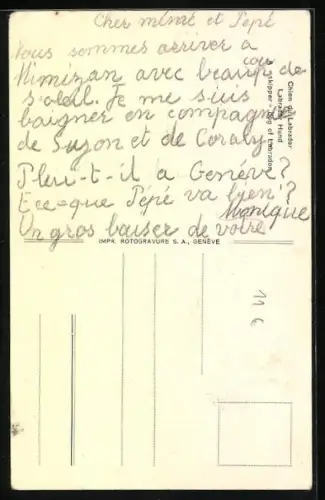 Cher mémé et Pépé
Nous sommes arriver a
Mimizan avec beaup de
coup
soleil. Je me suis
baigner en compagnie
de Suzon et de Coraly
Pleu-t-il a Genéve?
Ece-que Pépé va bien?
Un gros baiser de votre
Monique
Chien du Labrador
Labrador Hund
Skipper, dog of Labrador
IMPR. ROTOGRAVURE S. A., GENÈVE
11 €